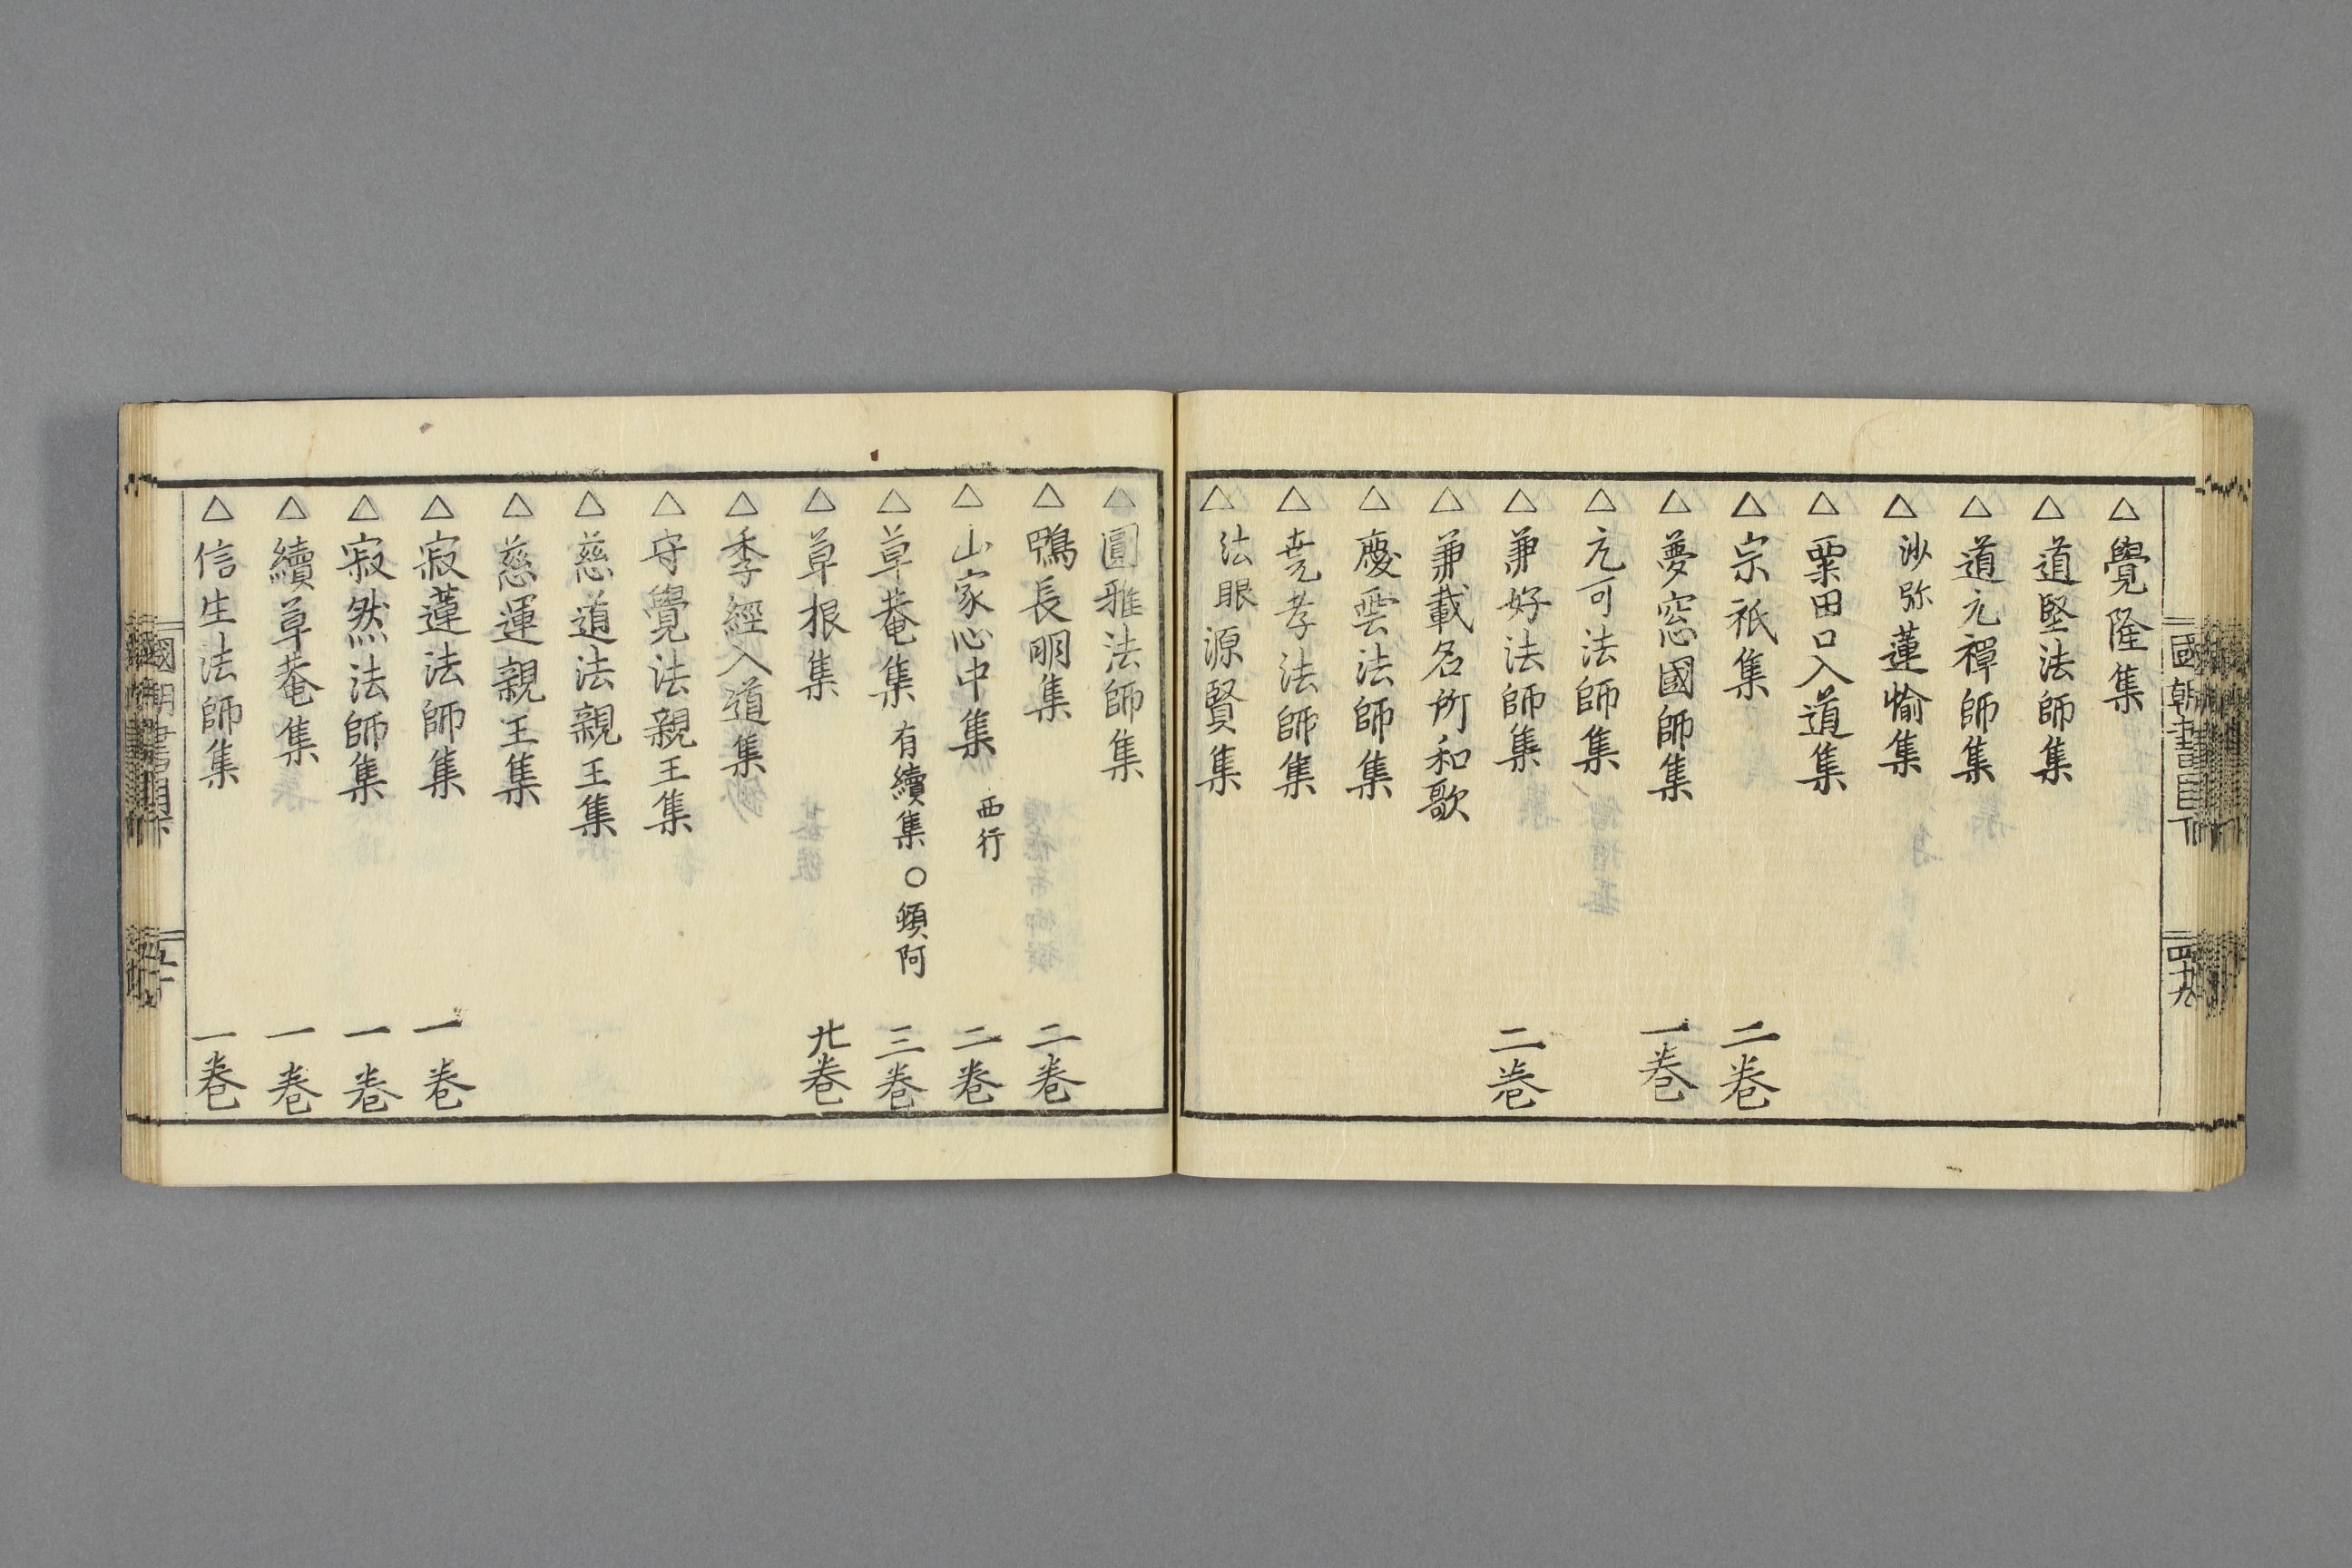 國朝書目下
四十九
△覺隆集
△道堅法師集
△道元禪師集
△沙弥蓮愉集
△粟田口入道集
△宗祇集 二卷
△夢窓國師集 一卷
△元可法師集
△兼好法師集 二卷
△兼載名所和歌
△慶雲法師集
△尭孝法師集
△法眼源賢集
△圓雅法師集
△鴨長明集 二卷
△山家心中集 西行 二卷
△草菴集 有續集○頓阿 三卷
△草根集 廿卷
△季經入道集
△守覺法親王集
△慈道法親王集
△慈運親王集
△寂蓮法師集 一卷
△寂然法師集 一卷
△續草菴集 一卷
△信生法師集 一卷